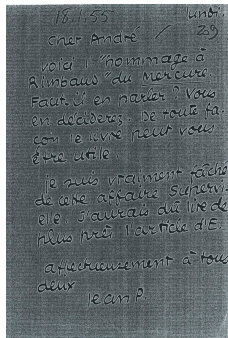 18.1.55. lundi.
cher André / 29
voici l'"hommage à
Rimbaud" du Mercure.
Faut-il en parler ? Vous
en déciderez. De toute fa-
çon le livre peut vous
être utile.
je suis vraiment fâché
de cette affaire Supervi-
elle. J'aurais dû lire de
plus près l'article d'E.
affectueusement à tous
deux
Jean P.